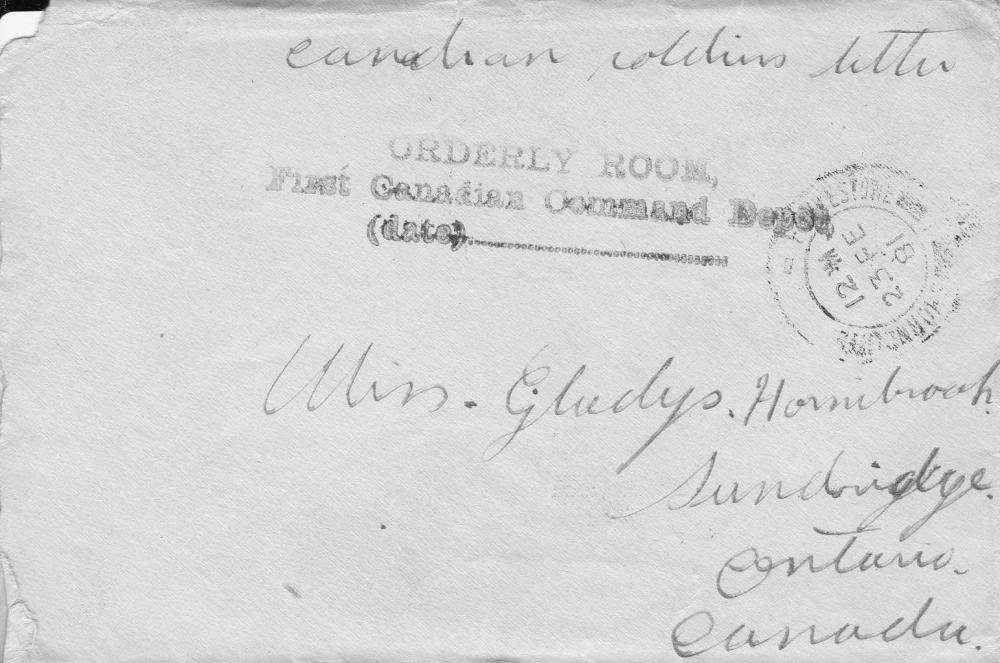 canadian soldiers letter
ORDERLY ROOM,
First Canadian Command Depot
(date)
12 M
23 FE
18
Miss. Gladys. Hornibrook.
Sundridge.
Ontario.
Canada.